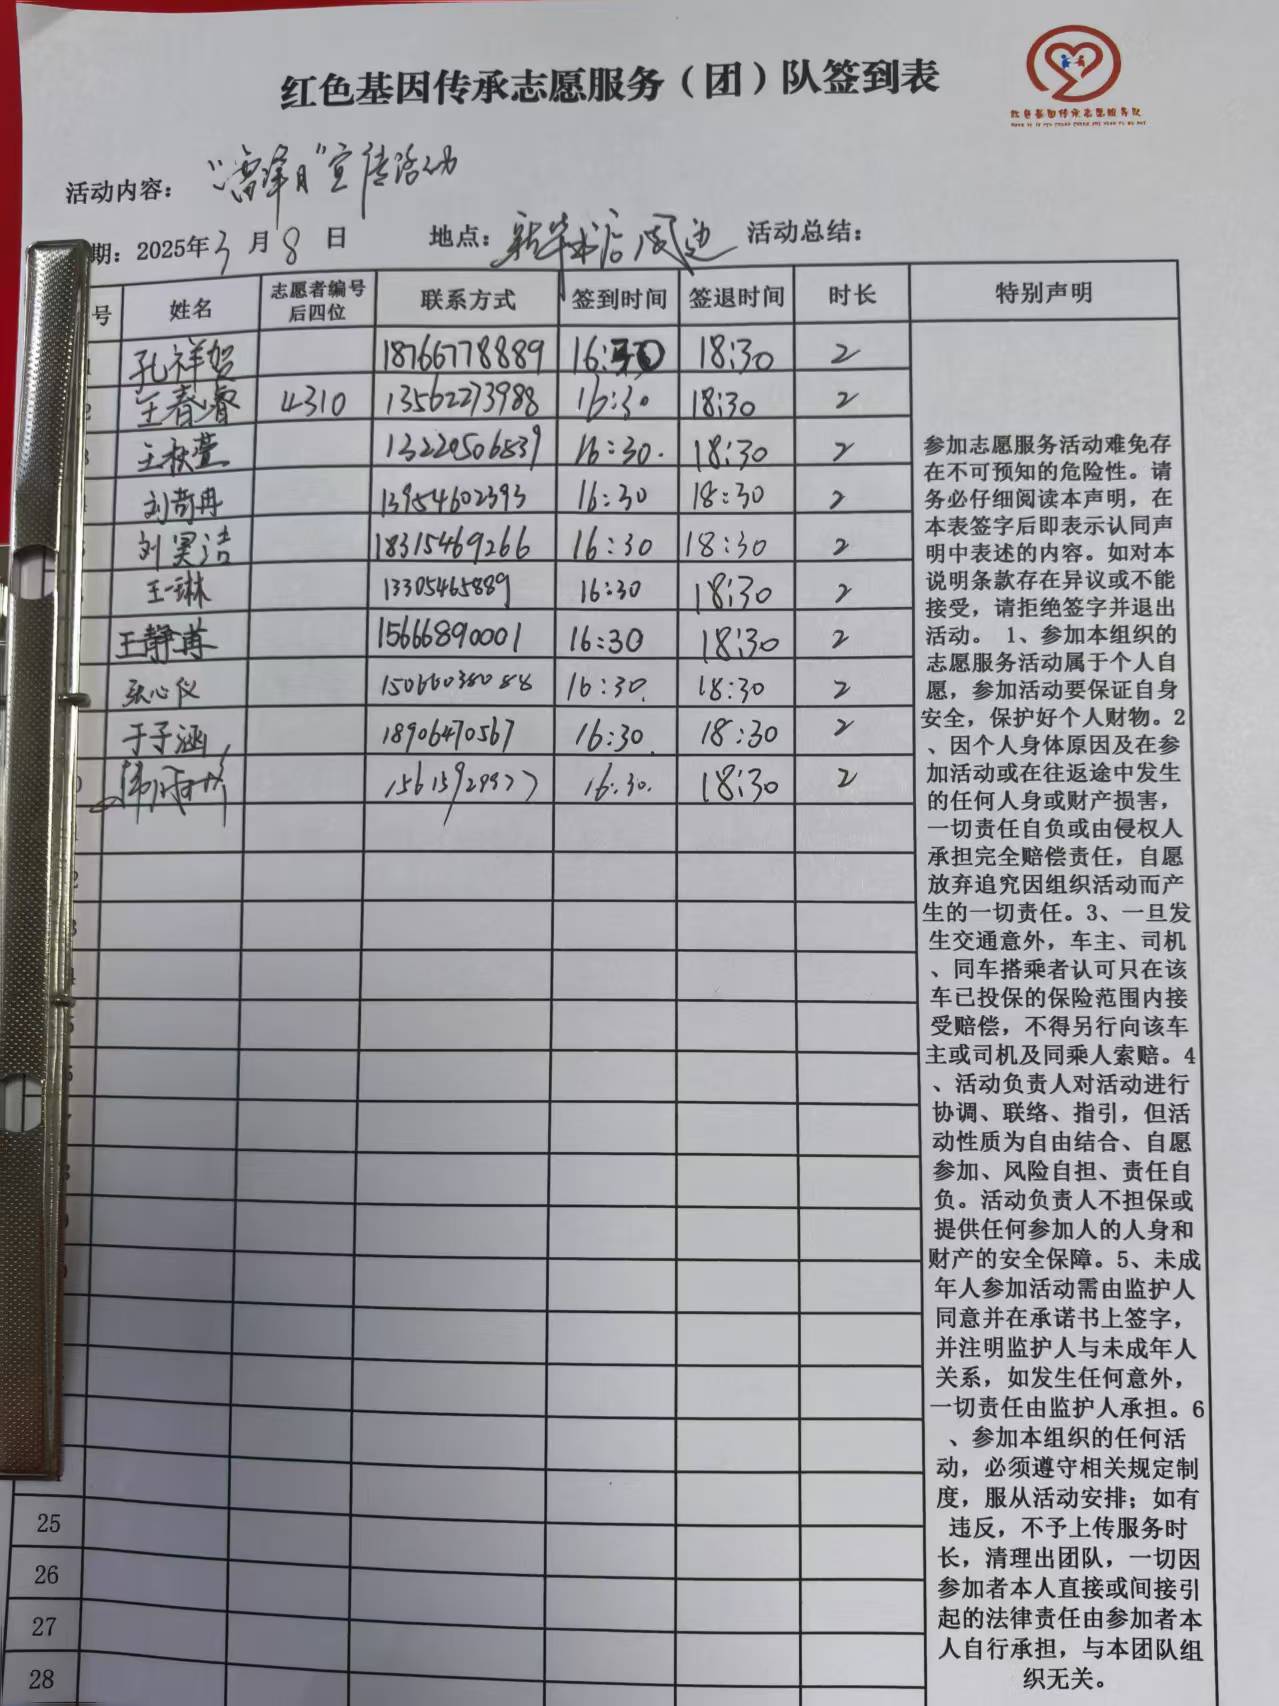 红色基因传承志愿服务（团）队签到表
红色基因传承志愿服务队
活动内容： “雷锋月”宣传活动
期：2025年3月8日 地点：新华书店周边 活动总结：
号 姓名 志愿者编号后四位 联系方式 签到时间 签退时间 时长 特别声明
孔祥贺 18766778889 16:30 18:30 2
王春睿 4310 13562273988 16:30 18:30 2
王秋莹 13220506539 16:30. 18:30 2
刘苛冉 13954602393 16:30 18:30 2
刘昊洁 18315469266 16:30 18:30 2
王一琳 13305465889 16:30 18:30 2
王静苒 15666890001 16:30 18:30 2
张心仪 15066038088 16:30. 18:30 2
于子涵 18906470567 16:30. 18:30 2
16:30. 18:30 2
25
26
27
28
参加志愿服务活动难免存
在不可预知的危险性。请
务必仔细阅读本声明，在
本表签字后即表示认同声
明中表述的内容。如对本
说明条款存在异议或不能
接受，请拒绝签字并退出
活动。 1、参加本组织的
志愿服务活动属于个人自
愿，参加活动要保证自身
安全，保护好个人财物。2
、因个人身体原因及在参
加活动或在往返途中发生
的任何人身或财产损害，
一切责任自负或由侵权人
承担完全赔偿责任，自愿
放弃追究因组织活动而产
生的一切责任。3、一旦发
生交通意外，车主、司机
、同车搭乘者认可只在该
车已投保的保险范围内接
受赔偿，不得另行向该车
主或司机及同乘人索赔。4
、活动负责人对活动进行
协调、联络、指引，但活
动性质为自由结合、自愿
参加、风险自担、责任自
负。活动负责人不担保或
提供任何参加人的人身和
财产的安全保障。5、未成
年人参加活动需由监护人
同意并在承诺书上签字，
并注明监护人与未成年人
关系，如发生任何意外，
一切责任由监护人承担。6
、参加本组织的任何活
动，必须遵守相关规定制
度，服从活动安排；如有
违反，不予上传服务时
长，清理出团队，一切因
参加者本人直接或间接引
起的法律责任由参加者本
人自行承担，与本团队组
织无关。